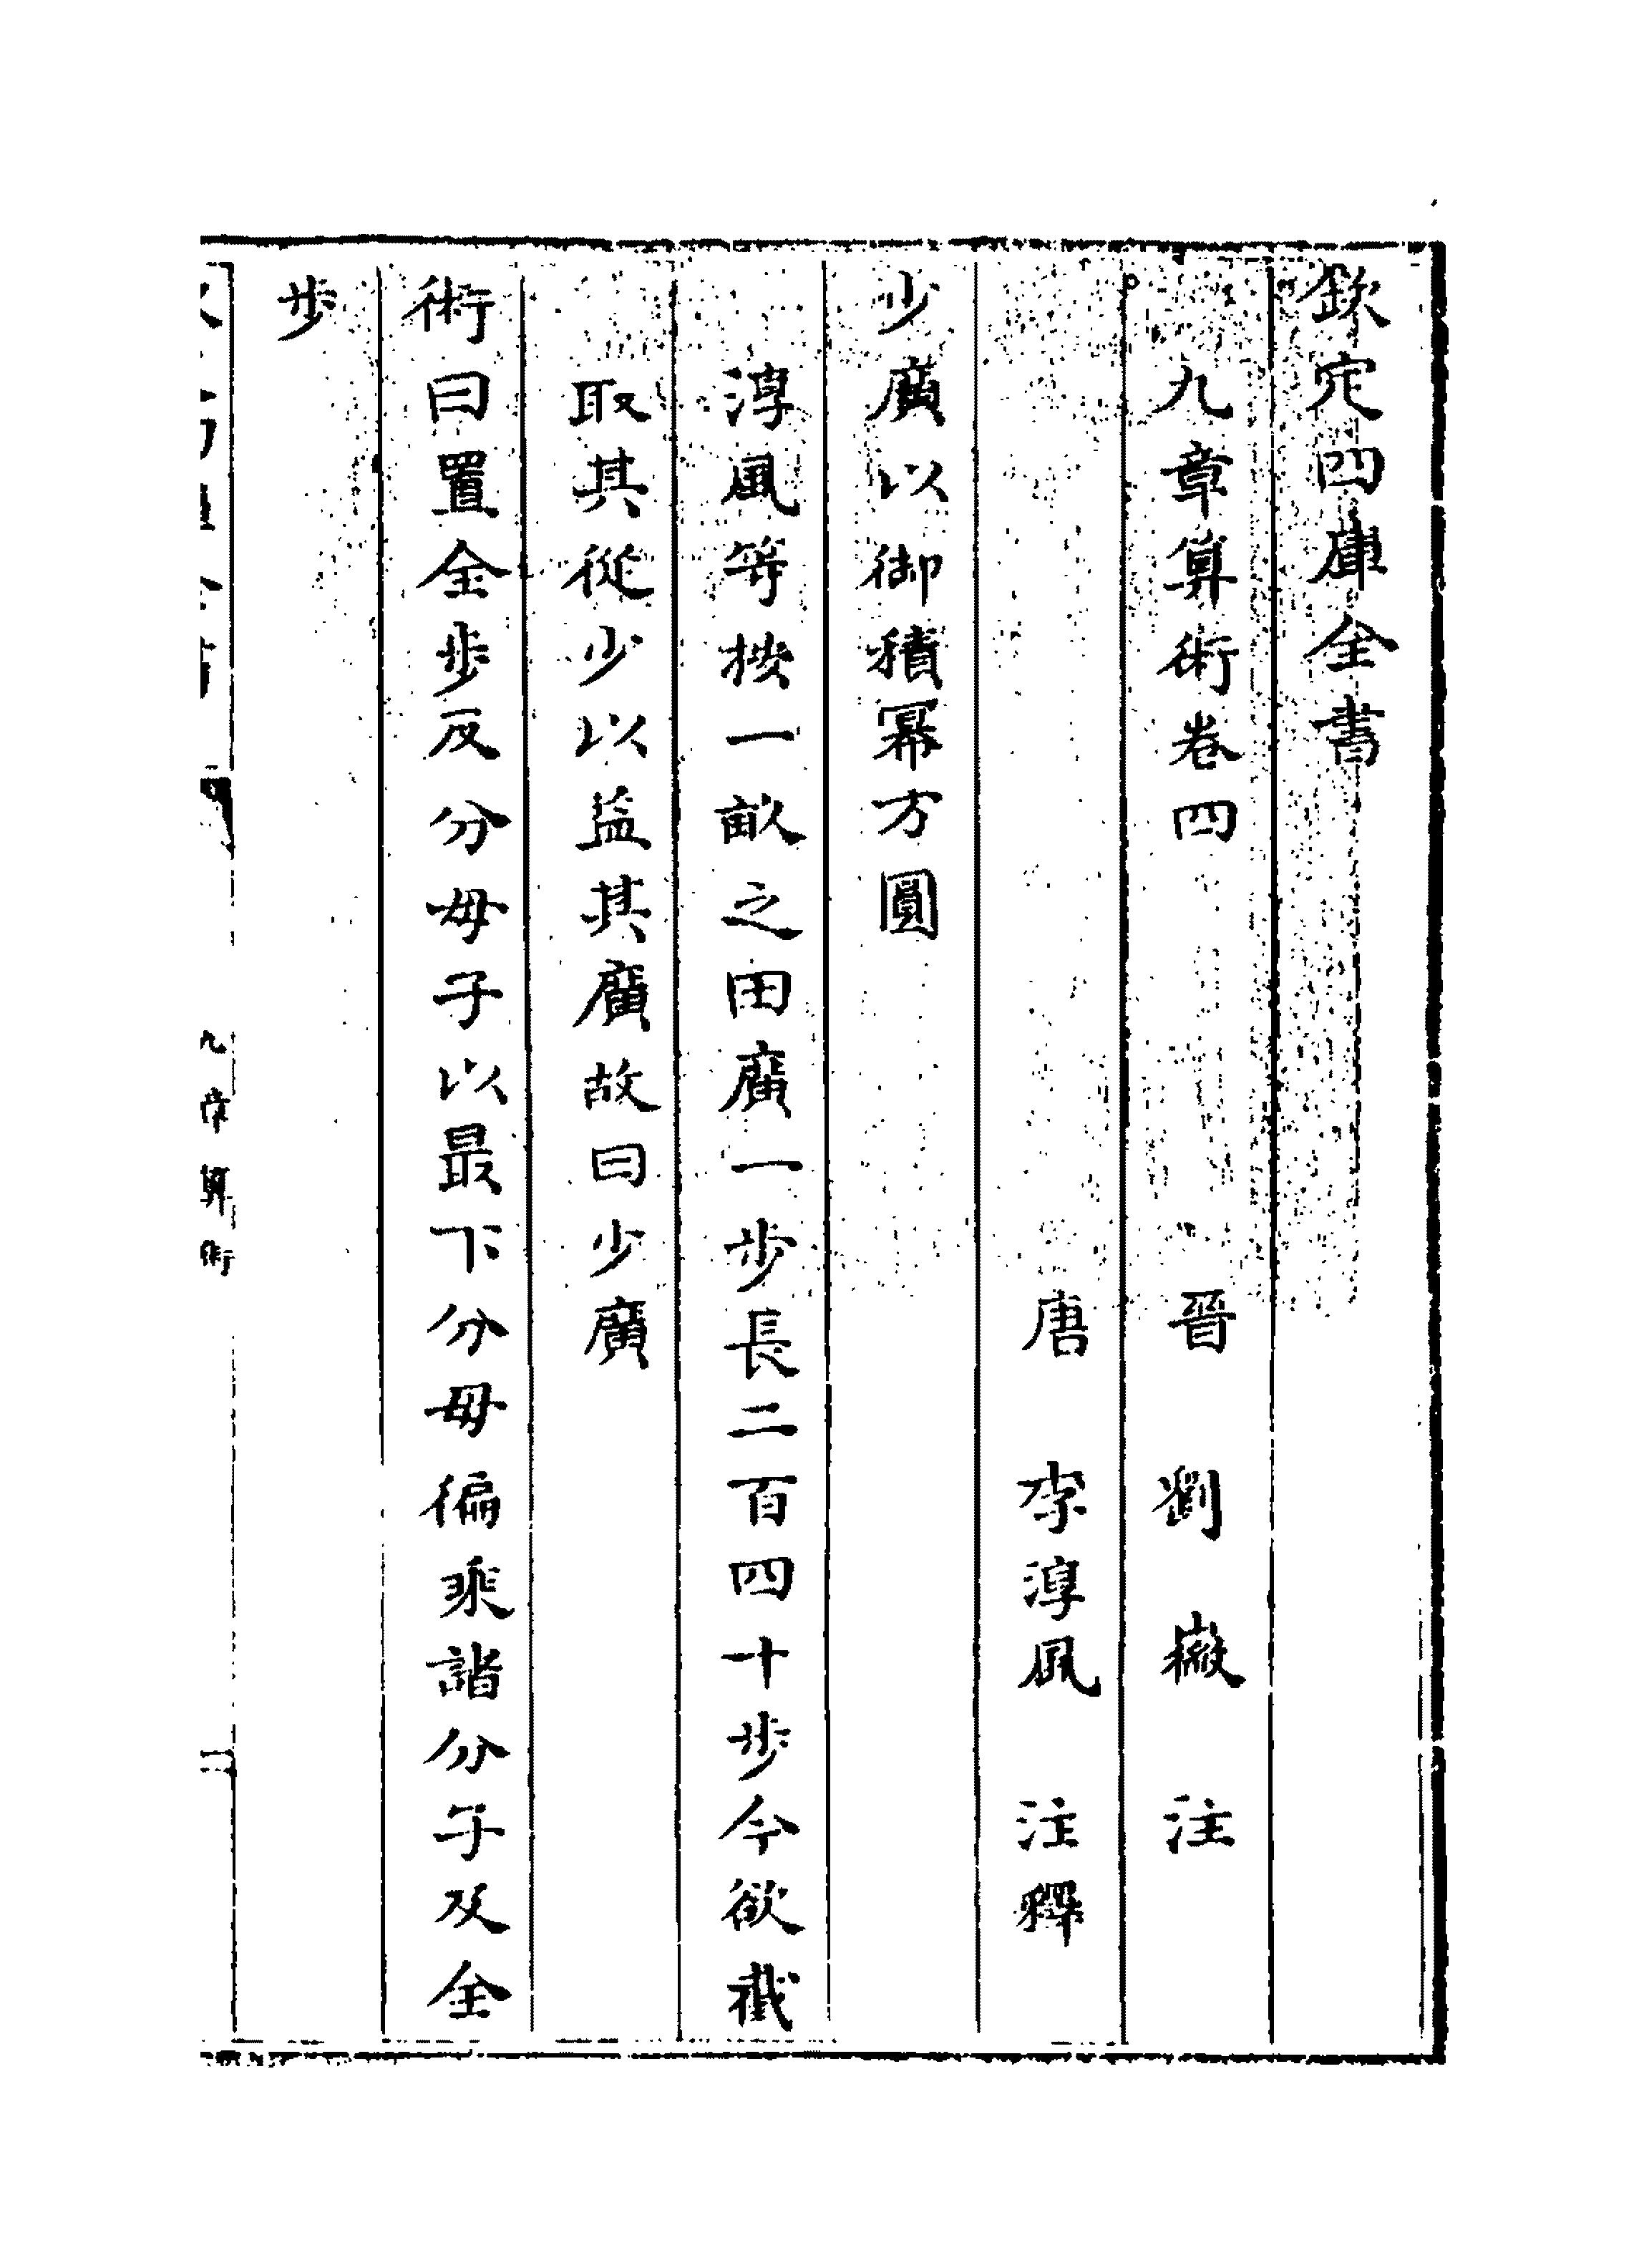 欽定四庫全書
九章算術卷四　晉　劉　徽　注
唐　李淳風　注釋
少廣以御積冪方圓
淳風等按一畝之田廣一步長二百四十步今欲截
取其從少以益其廣故曰少廣
術曰置全步及分母子以最下分母徧乘諸分子及全
步
九章算術